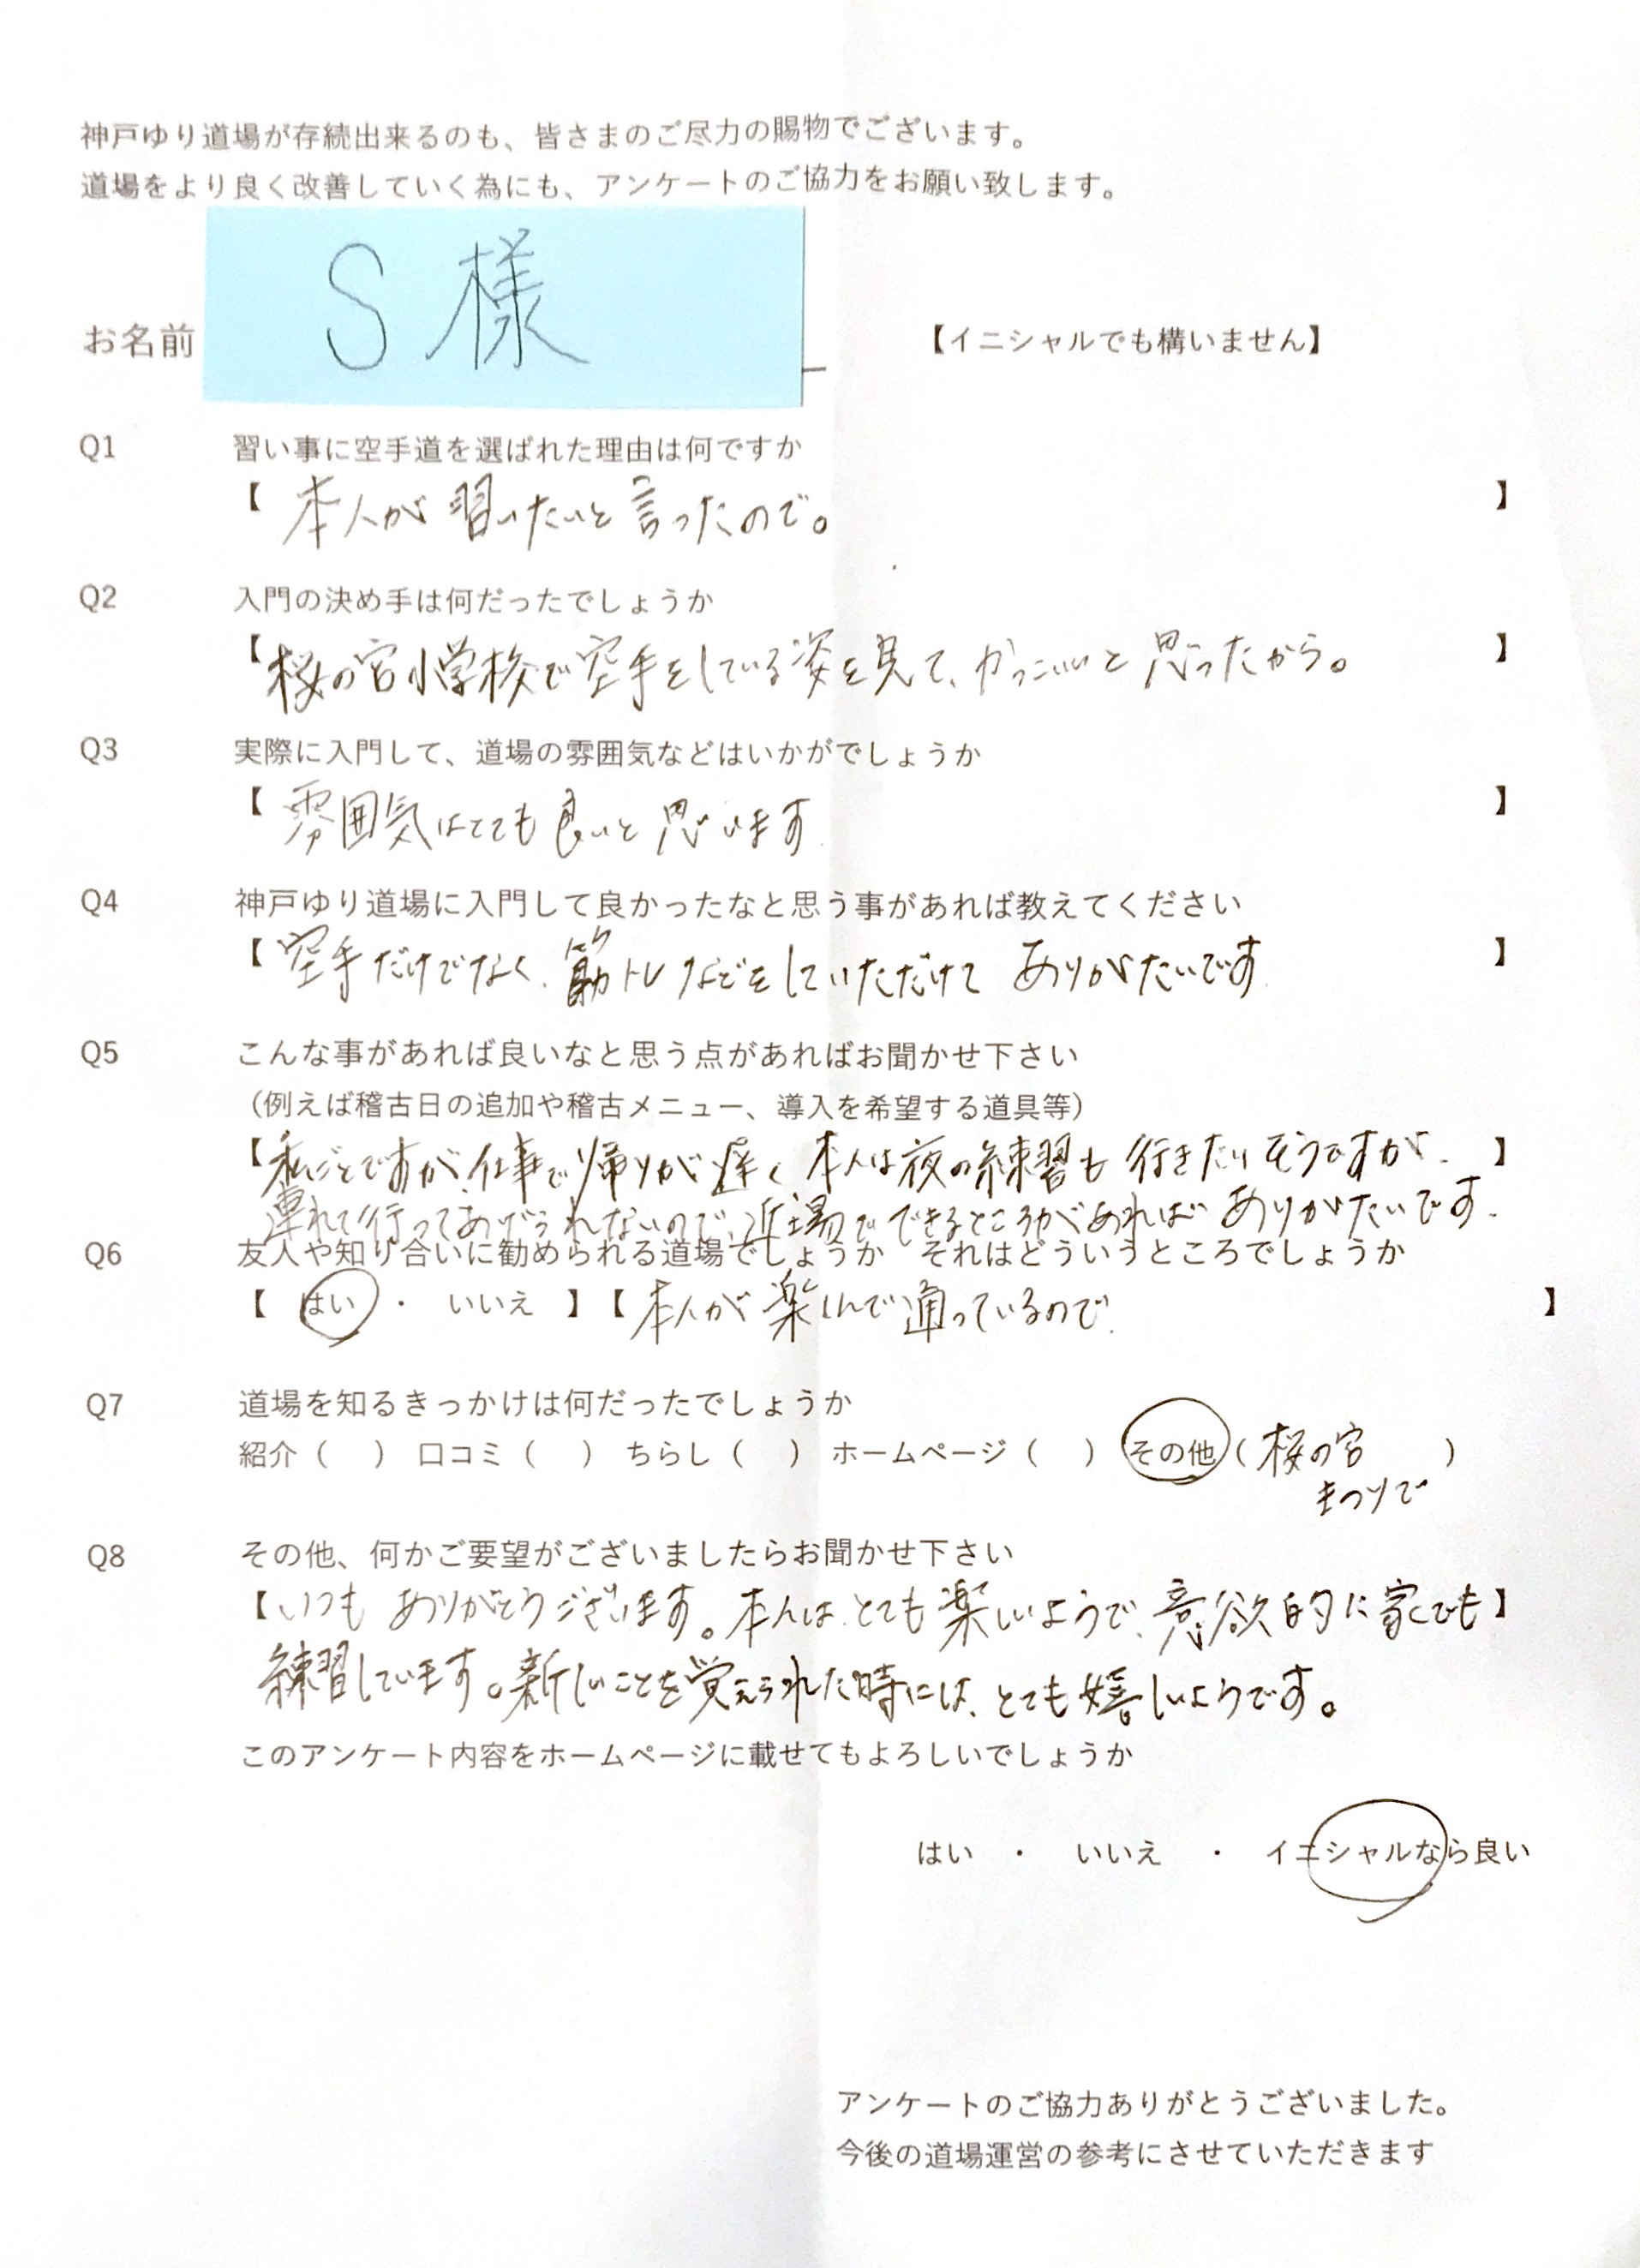 神戸ゆり道場が存続出来るのも、皆さまのご尽力の賜物でございます。
道場をより良く改善していく為にも、アンケートのご協力をお願い致します。
お名前 S 様 【イニシャルでも構いません】
Q1 習い事に空手道を選ばれた理由は何ですか
【 本人が習いたいと言ったので。 】
Q2 入門の決め手は何だったでしょうか
【桜の宮小学校で空手をしている姿を見て、かっこいいと思ったから。 】
Q3 実際に入門して、道場の雰囲気などはいかがでしょうか
【 雰囲気はとても良いと思います 】
Q4 神戸ゆり道場に入門して良かったなと思う事があれば教えてください
【 空手だけでなく、筋トレなどをしていただけて ありがたいです 】
Q5 こんな事があれば良いなと思う点があればお聞かせ下さい
（例えば稽古日の追加や稽古メニュー、導入を希望する道具等）
【私ごとですが、仕事で帰りが遅く 本人は夜の練習も行きたいそうですが、 】
連れて行ってあげられないので、近場でできるところがあればありがたいです。
Q6 友人や知り合いに勧められる道場でしょうか それはどういうところでしょうか
【 はい ・ いいえ 】【 本人が楽しんで通っているので 】
Q7 道場を知るきっかけは何だったでしょうか
紹介（ ） 口コミ（ ） ちらし（ ） ホームページ（ ） その他（桜の宮 ）
まつりで
Q8 その他、何かご要望がございましたらお聞かせ下さい
【いつも ありがとうございます。本人は、とても楽しいようで、意欲的に家でも】
練習しています。新しいことを覚えられた時には、とても嬉しいようです。
このアンケート内容をホームページに載せてもよろしいでしょうか
はい ・ いいえ ・ イニシャルなら良い
アンケートのご協力ありがとうございました。
今後の道場運営の参考にさせていただきます